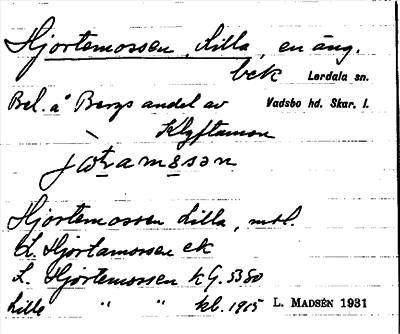 Hjortemossen, Lilla, en äng.
bek Lerdala sn.
Bel. å Bergs andel av Vadsbo hd. Skar. l.
Klyftamon
Hjortemossen Lilla, msl.
L. Hjortamossen ek
L. Hjortemossen kG. 5350
Lille " " kb. 1915 L. MADSÉN 1931